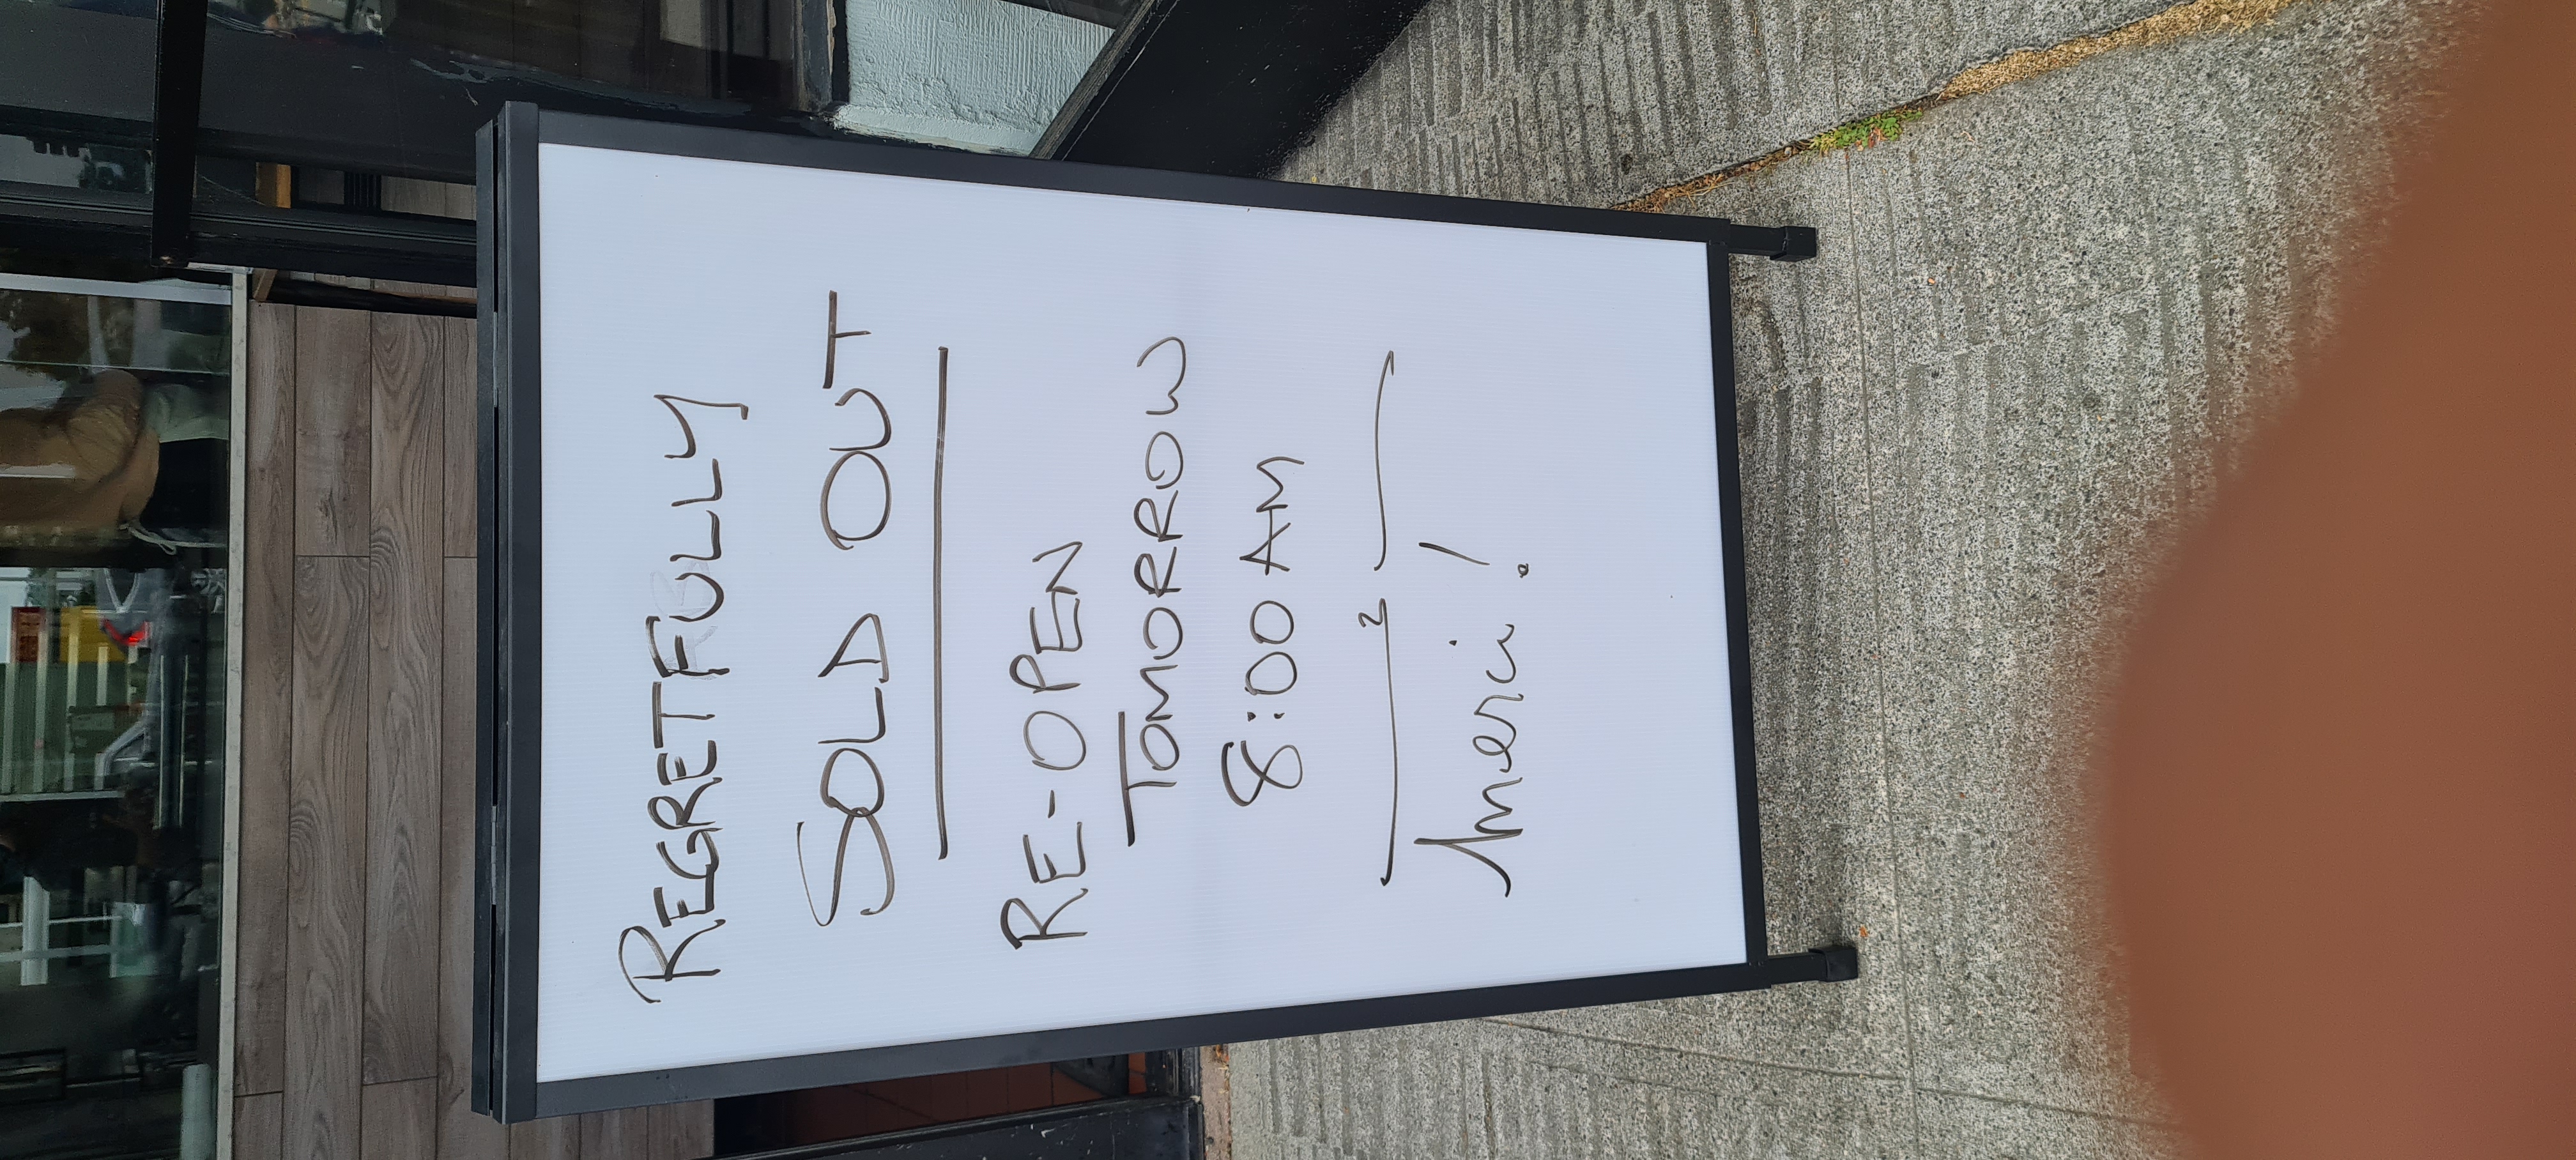 REGRETFULLY
SOLD OUT
RE-OPEN
TOMORROW
8:00 AM
merci!